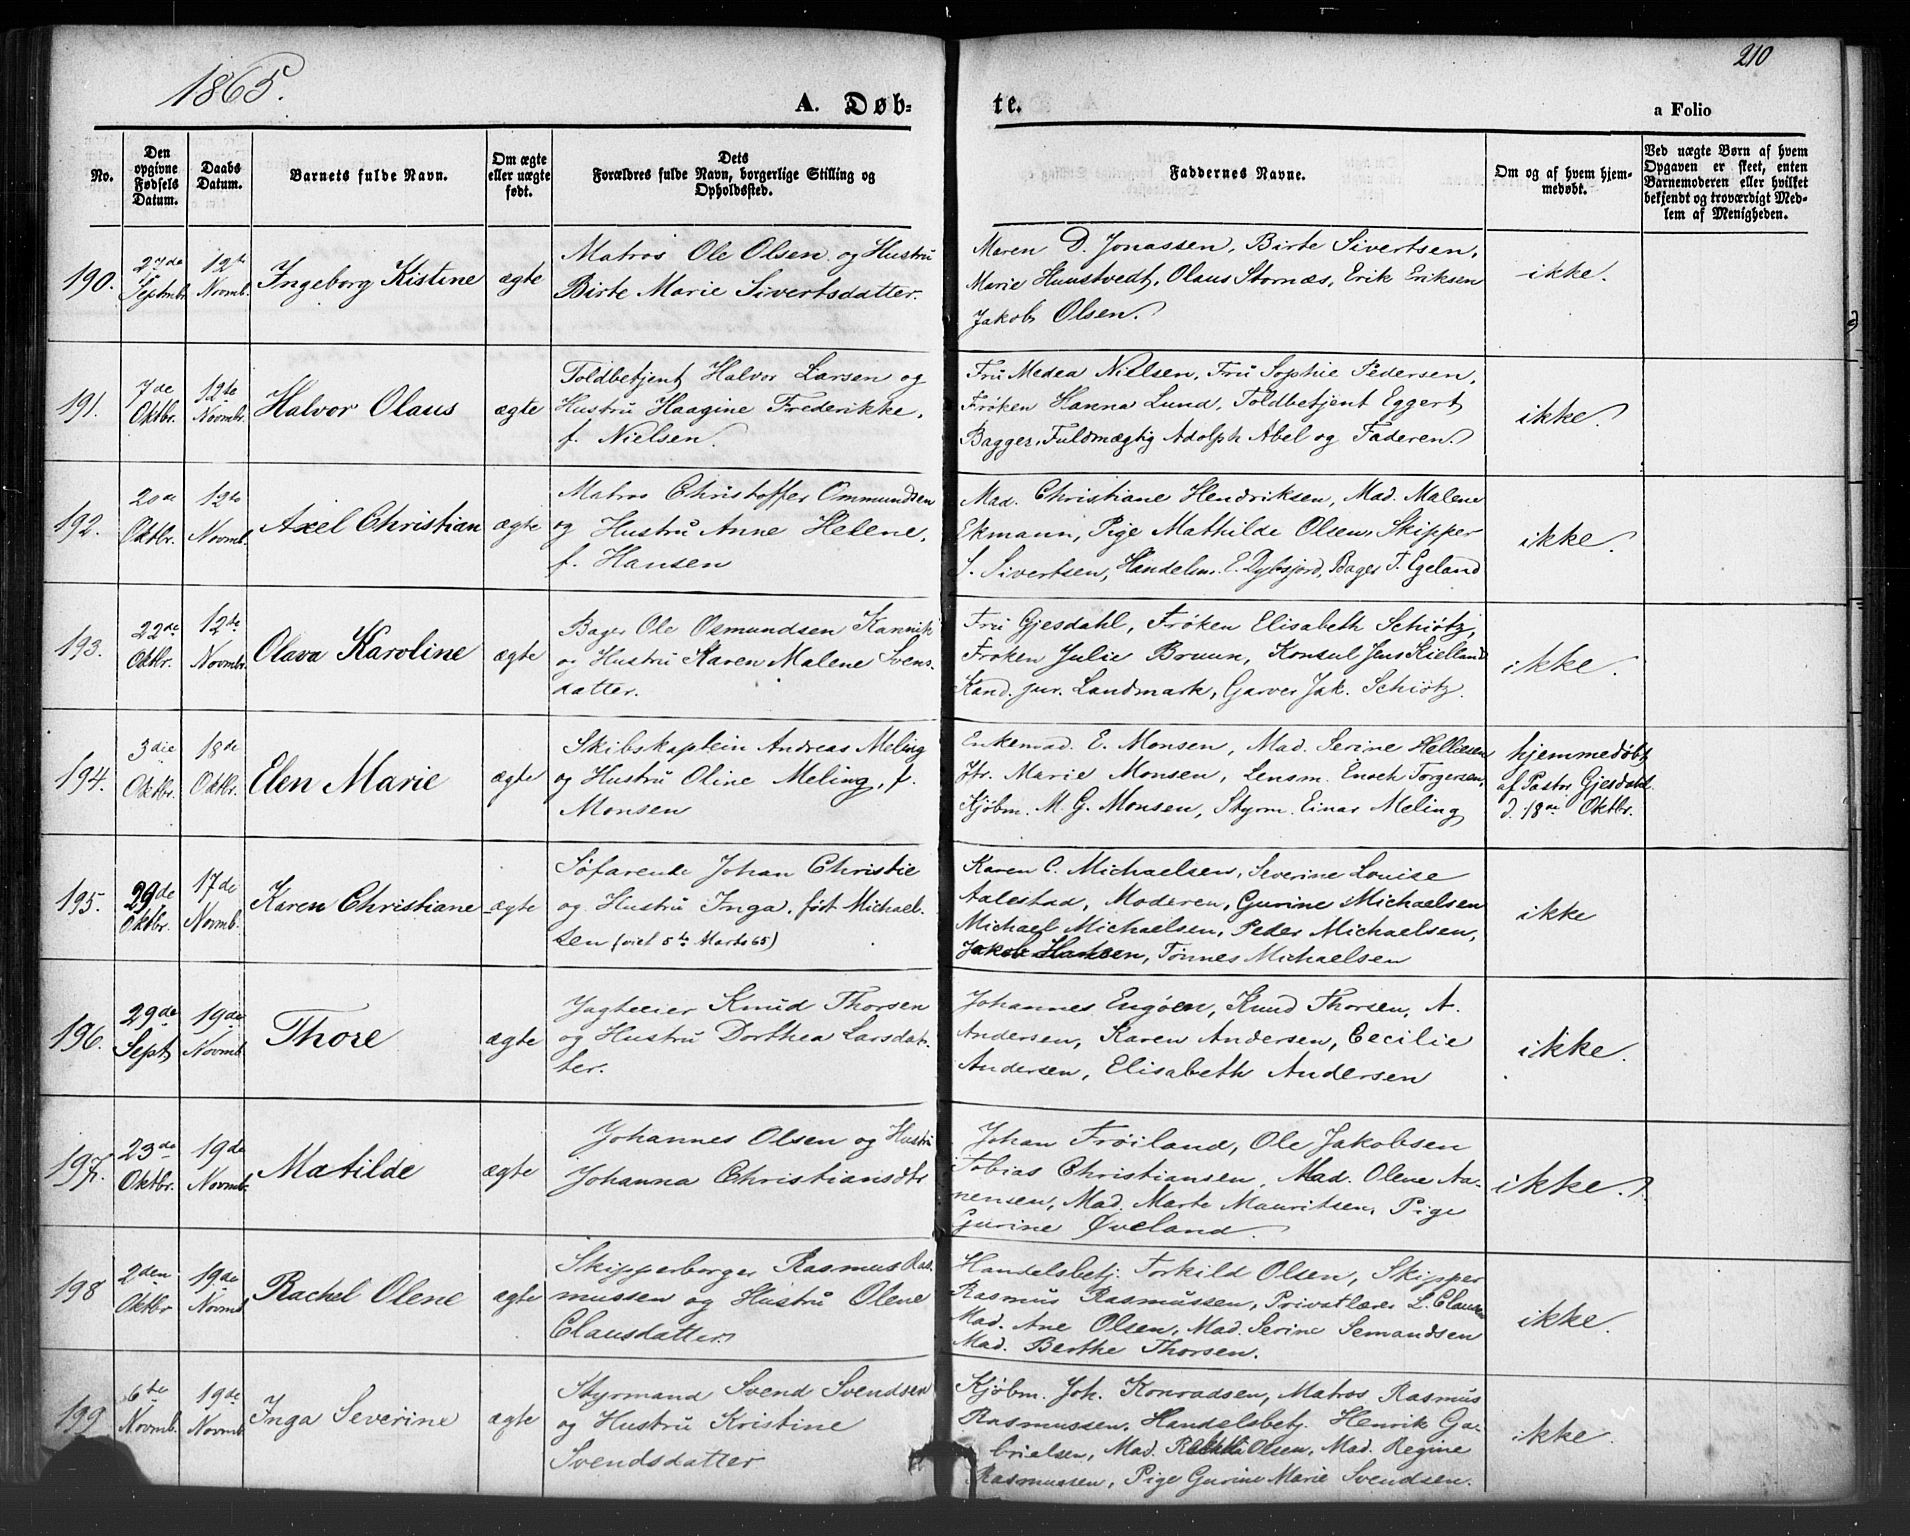 1865.
A. Døb-
te.
210
a Folio
No.
Den opgivne Fødsels Datum.
Daabs Datum.
Barnets fulde Navn.
Om ægte eller uægte født.
Dets Forældres fulde Navn, borgerlige Stilling og Opholdssted.
Faddernes Navne.
Om og af hvem hjemmedøbt.
Ved uægte Børn af hvem Opgaven er skeet, enten Barnemoderen eller hvilket bekjendt og troværdigt Medlem af Menigheden.
190.
27de Septmbr.
12te Novmb.
Ingeborg Kistine
ægte
Matros Ole Olsen og Hustru
Birte Marie Sivertsdatter.
Maren D. Jonassen, Birte Sivertsen,
Marie Hunstvedt, Olaus Stornæs, Erik Eriksen
Jakob Olsen.
ikke.
191.
7de Oktbr.
12te Novmbr.
Halvor Olaus
ægte
Toldbetjent Halvor Larsen og
Hustru Haagine Frederikke,
f. Nielsen.
Fru Medea Nielsen, Fru Sophie Pedersen,
Frøken Hanna Lund, Toldbetjent Eggert
Bagger, Fuldmægtig Adolph Abel og Faderen.
ikke.
192.
20de Oktbr.
12te Novmb.
Axel Christian
ægte
Matros Christoffer Ommundsen
og Hustru Anne Helene,
f. Hansen
Mad. Christiane Hendriksen, Mad. Malene
Ekmann, Pige Mathilde Olsen, Skipper
S. Sivertsen, Handelsm. E. Dybsjord, Bager T. Egeland
ikke.
193.
22de Oktbr.
12te Novmbr.
Olava Karoline
ægte
Bager Ole Osmundsen Kannik
og Hustru Karen Malene Svens-
datter.
Fru Gjesdahl, Frøken Elisabeth Schiøtz,
Frøken Julie Bruun, Konsul Jens Kielland
Kand. jur. Landmark, Garver Jak. Schiøtz.
ikke.
194.
3die Oktbr.
18de Oktbr.
Elen Marie
ægte
Skibskaptein Andreas Meling
og Hustru Oline Meling, f.
Monsen
Enkemad. E. Monsen, Mad. Serine Helliesen
Jfr. Marie Monsen, Lensm. Enoch Torgersen,
Kjøbm. M. G. Monsen, Styrm. Einar Meling
hjemmedøbt
af Pastor Gjesdahl
d. 18de Oktbr.
195.
29de Oktbr.
17de Novmb.
Karen Christiane
ægte
Søfarende Johan Christie
og Hustru Inga, født Michael-
sen (viet 5te Marts 65)
Karen C. Michaelsen, Severine Louise
Aalestad, Moderen, Gurine Michaelsen
Michael Michaelsen, Peder Michaelsen,
Jakob Hansen, Tønnes Michaelsen
ikke
196.
29de Sept
19de Novmb.
Thore
ægte
Jagteeier Knud Thorsen
og Hustru Dorthea Larsdat-
ter.
Johannes Engøen, Knud Thorsen, A.
Andersen, Karen Andersen, Cecilie
Andersen, Elisabeth Andersen
ikke.
197.
23de Oktbr.
19de Novmb.
Matilde
ægte
Johannes Olsen og Hustru
Johanna Christiansdtr
Johan Frøiland, Ole Jakobsen
Tobias Christiansen, Mad. Olene Aa-
nensen, Mad. Marte Mauritsen, Pige
Gurine Øveland.
ikke.
198
2den Oktbr
19de Novmb.
Rachel Olene
ægte
Skipperborger Rasmus Ras-
mussen og Hustru Olene
Clausdatter
Handelsbetj. Torkild Olsen, Skipper
Rasmus Rasmussen, Privatlærer L. Clausen
Mad. Ane Olsen, Mad. Serine Semandsen
Mad. Berthe Thorsen.
ikke.
199
6te Novmb.
19de Novmb.
Inga Severine
ægte
Styrmand Svend Svendsen
og Hustru Kristine
Svendsdatter
Kjøbm. Joh. Konradsen, Matros Rasmus
Rasmussen, Handelsbetj. Henrik Ga-
brielsen, Mad. Olsen, Mad. Regine
Rasmussen, Pige Gurine Marie Svendsen.
ikke.